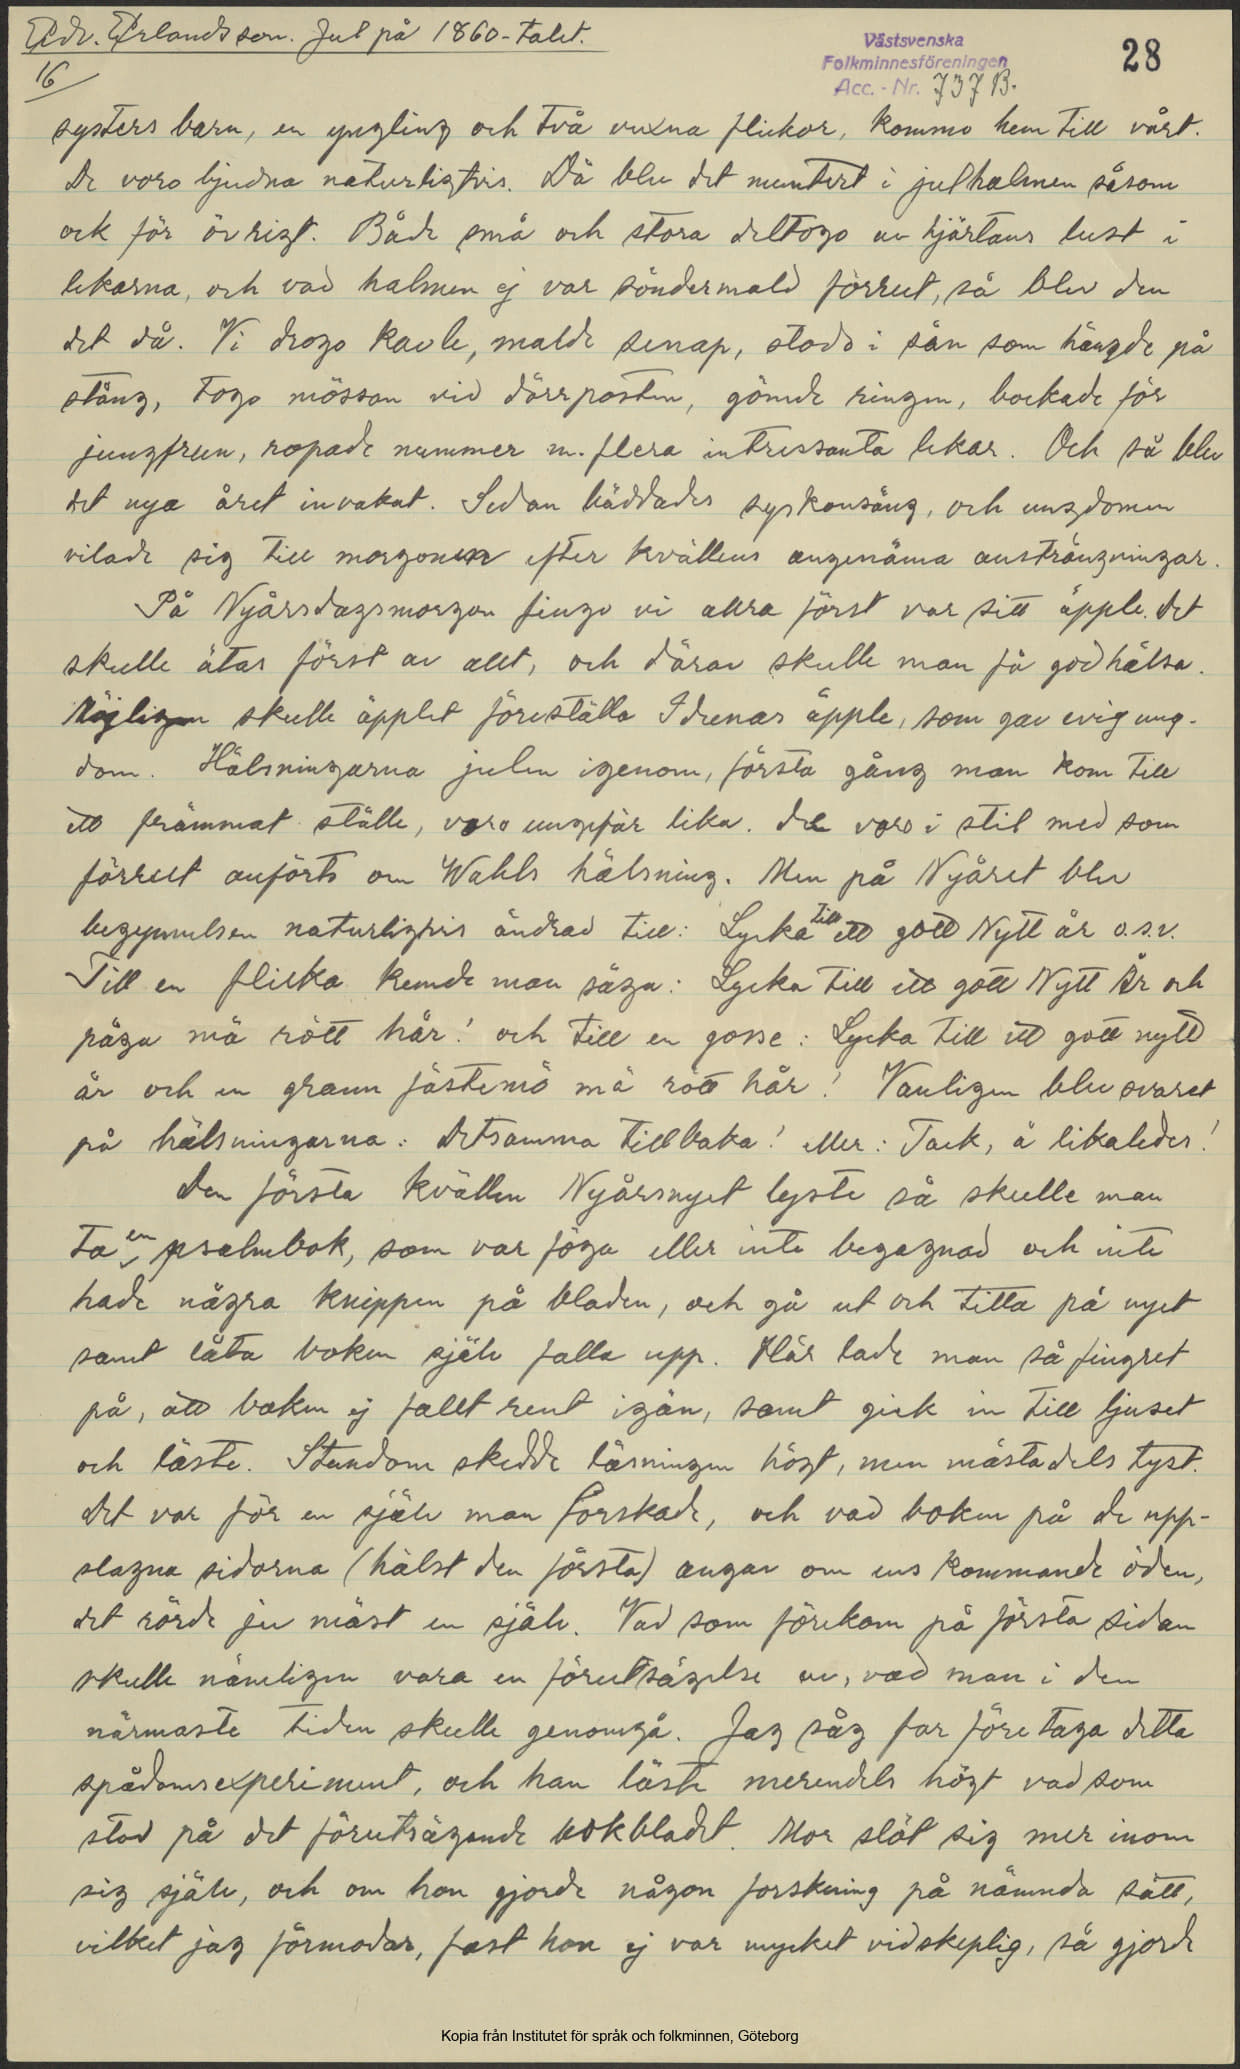 Edv. Erlandsson. Jul på 1860-talet.
Västsvenska
Folkminnesföreningen
Acc. - Nr. 737 B.
28
16
systers barn, en yngling och två vuxna flickor, kommo hem till vårt.
De voro bjudna naturligtvis. Då blev det muntert i julhalmen såsom
ock för övrigt. Både små och stora deltogo av hjärtans lust i
lekarna, och vad halmen ej var söndermald förrut, så blev den
det då. Vi drogo kavle, malde senap, stodo i sån som hängde på
stång, togo mössan vid dörrposten, gömde ringen, bockade för
jungfrun, ropade nummer m. flera intressanta lekar. Och så blev
det nya året invakat. Sedan bäddades syskonsäng, och ungdomen
vilade sig till morgonen efter kvällens angenäma ansträngningar.
På Nyårsdagsmorgon fingo vi allra först var sitt äpple. Det
skulle ätas först av allt, och därav skulle man få god hälsa.
Möjligen skulle äpplet föreställa Idunas äpple, som gav evig ung-
dom. Hälsningarna julen igenom, första gång man kom till
ett främmat ställe, voro ungefär lika. De voro i stil med som
förrut anförts om Wahls hälsning. Men på Nyåret blev
begynnelsen naturligtvis ändrad till: Lycka till ett gott Nytt år o.s.v.
Till en flicka kunde man säga: Lycka till ett gott Nytt År och
påga mä rött hår! och till en gosse: Lycka till ett gott nytt
år och en grann fästemö mä rött hår! Vanligen blev svaret
på hälsningarna: Detsamma tillbaka! eller: Tack, å likaledes!
Den första kvällen Nyårsnyet lyste så skulle man
ta en psalmbok, som var föga eller inte begagnad och inte
hade några knippen på bladen, och gå ut och titta på nyet
samt låta boken själv falla upp. Här lade man så fingret
på, att boken ej fallt rent igän, samt gick in till ljuset
och läste. Stundom skedde läsningen högt, men mästadels tyst.
Det var för en själv man forskade, och vad boken på de upp-
slagna sidorna (hälst den första) angav om ens kommande öden,
det rörde ju mäst en själv. Vad som förekom på första sidan
skulle nämligen vara en förutsägelse av, vad man i den
närmaste tiden skulle genomgå. Jag såg far företaga detta
spådomsexperiment, och han läste merendels högt vad som
stod på det förutsägande bokbladet. Mor slöt sig mer inom
sig själv, och om hon gjorde någon forskning på nämnda sätt,
vilket jag förmodar, fast hon ej var mycket vidskeplig, så gjorde
Kopia från Institutet för språk och folkminnen, Göteborg